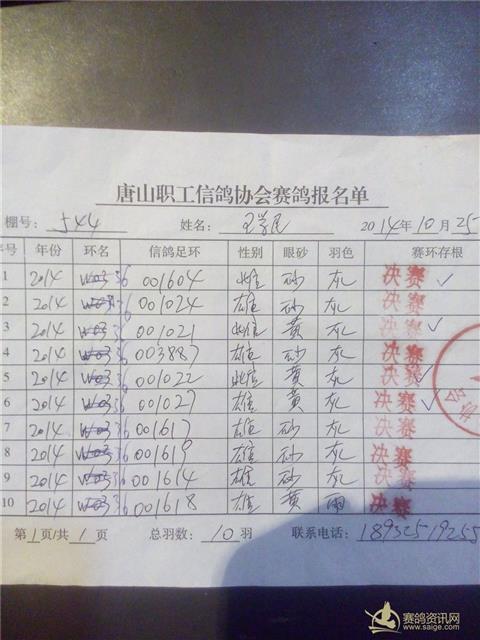 唐山职工信鸽协会赛鸽报名单
棚号: 544 姓名: 2014年10月25
序号 年份 环名 信鸽足环 性别 眼砂 羽色 赛环存根
1 2014 36 001604 雌 砂 灰 决赛 ✓
2 2014 36 001024 雄 砂 灰 决赛
3 2014 36 001021 雌 黄 灰 决赛 ✓
4 2014 36 003887 雄 砂 灰 决赛
5 2014 36 001022 雌 黄 灰 决赛 ✓
6 2014 36 001027 雄 黄 灰 决赛 ✓
7 2014 36 001617 雄 砂 灰 决赛
8 2014 36 001619 雄 砂 灰 决赛
9 2014 36 001614 雄 砂 灰 决赛
10 2014 36 001618 雄 黄 雨 决赛
第1页/共1页 总羽数: 10羽 联系电话: 18932519255
赛鸽资讯网
www.saige.com